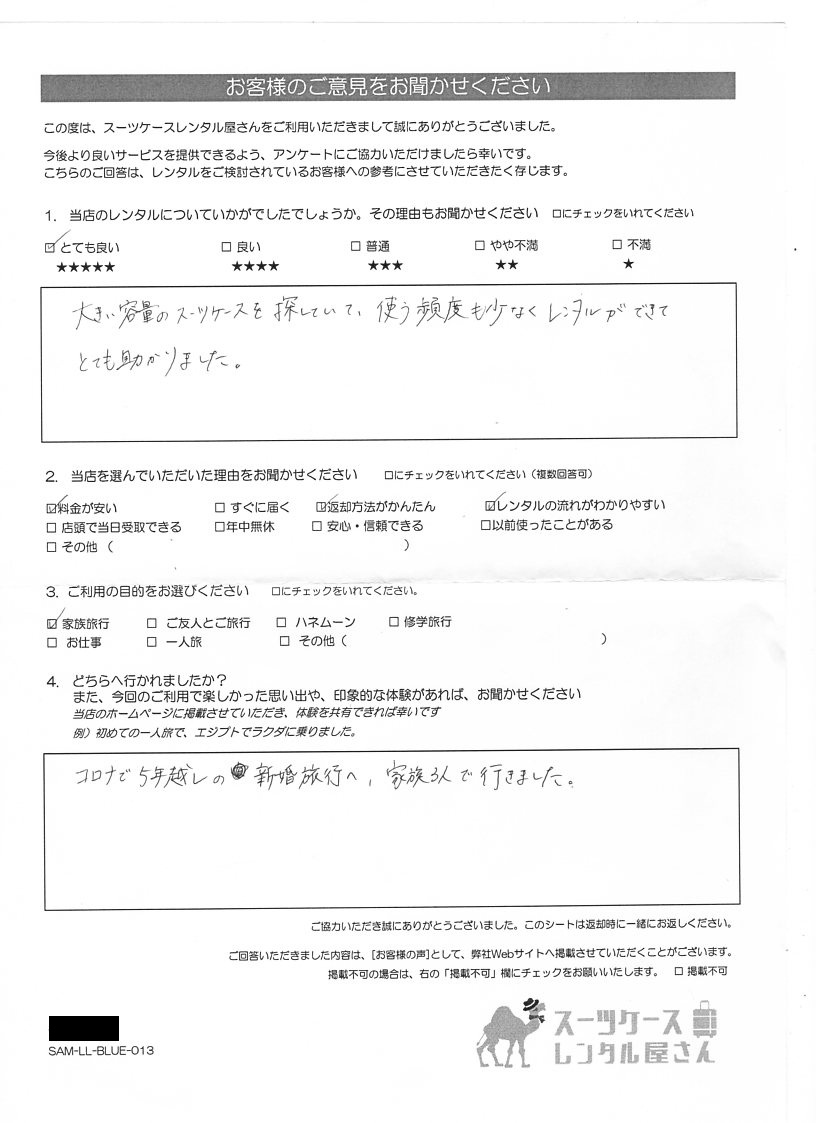 お客様のご意見をお聞かせください
この度は、スーツケースレンタル屋さんをご利用いただきまして誠にありがとうございました。
今後より良いサービスを提供できるよう、アンケートにご協力いただけましたら幸いです。
こちらのご回答は、レンタルをご検討されているお客様への参考にさせていただきたく存じます。
1. 当店のレンタルについていかがでしたでしょうか。その理由もお聞かせください □にチェックをいれてください
☑ とても良い □ 良い □ 普通 □ やや不満 □ 不満
★★★★★ ★★★★ ★★★ ★★ ★
大きい容量のスーツケースを探していて、使う頻度も少なくレンタルができて
とても助かりました。
2. 当店を選んでいただいた理由をお聞かせください □にチェックをいれてください（複数回答可）
☑料金が安い □ すぐに届く ☑返却方法がかんたん ☑レンタルの流れがわかりやすい
□ 店頭で当日受取できる □年中無休 □ 安心・信頼できる □以前使ったことがある
□ その他（ ）
3. ご利用の目的をお選びください □にチェックをいれてください。
☑ 家族旅行 □ ご友人とご旅行 □ ハネムーン □ 修学旅行
□ お仕事 □ 一人旅 □ その他（ ）
4. どちらへ行かれましたか？
また、今回のご利用で楽しかった思い出や、印象的な体験があれば、お聞かせください
当店のホームページに掲載させていただき、体験を共有できれば幸いです
例）初めての一人旅で、エジプトでラクダに乗りました。
コロナで5年越しの新婚旅行へ、家族3人で行きました。
ご協力いただき誠にありがとうございました。このシートは返却時に一緒にお返しください。
ご回答いただきました内容は、[お客様の声]として、弊社Webサイトへ掲載させていただくことがございます。
掲載不可の場合は、右の「掲載不可」欄にチェックをお願いいたします。 □ 掲載不可
スーツケース
レンタル屋さん
SAM-LL-BLUE-013